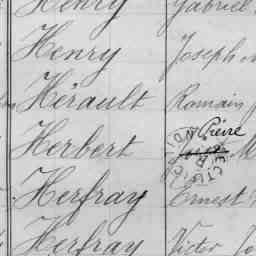 Henry Gabriel
Henry Joseph
Hérault Romain
Pierre
Herbert M
Herfray Ernest
Herfray Victor Jo